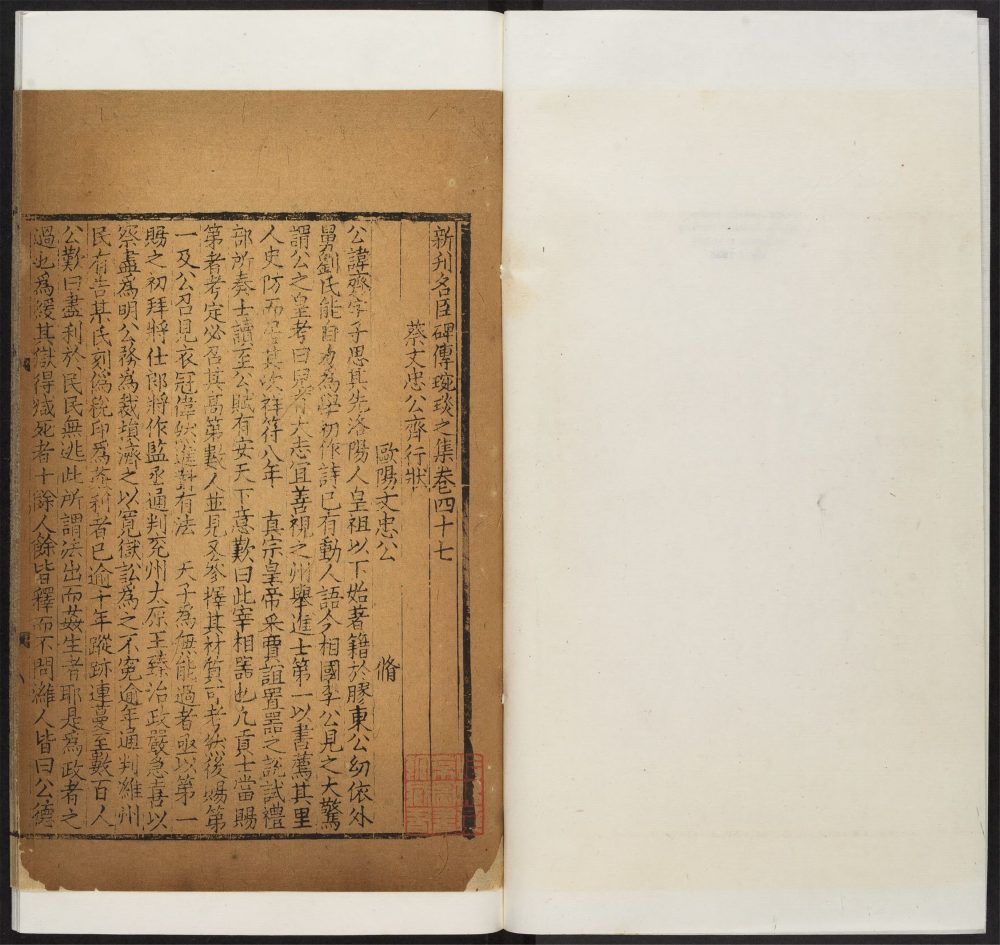 新刋名臣碑傳琬琰之集卷四十七
蔡文忠公齊行狀
歐陽文忠公 脩
公諱齊字子思其先洛陽人皇祖以下始著籍於膠東公幼依外
舅劉氏能自力為學初作詩已有動人語今相國李公見之大驚
謂公之皇考曰兒有大志宜善視之州舉進士第一以書薦其里
人史防而居其次祥符八年 真宗皇帝采賈誼置器之説試禮
部所奏士讀至公賦有安天下意歎曰此宰相器也凡貢士當賜
第者考定必召其高第數人並見又參擇其材質可者然後賜第
一及公召見衣冠偉然進對有法 天子為無能過者亟以第一
賜之初拜將仕郎將作監丞通判兖州太原王臻治政嚴急喜以
察盡為明公務為裁損濟之以寛獄訟為之不寃逾年通判濰州
民有告某氏刻僞稅印為姦利者已逾十年蹤跡連蔓至數百人
公歎曰盡利於民民無逃此所謂法出而姦生者耶是為政者之
過也為緩其獄得減死者十餘人餘皆釋而不問濰人皆曰公德